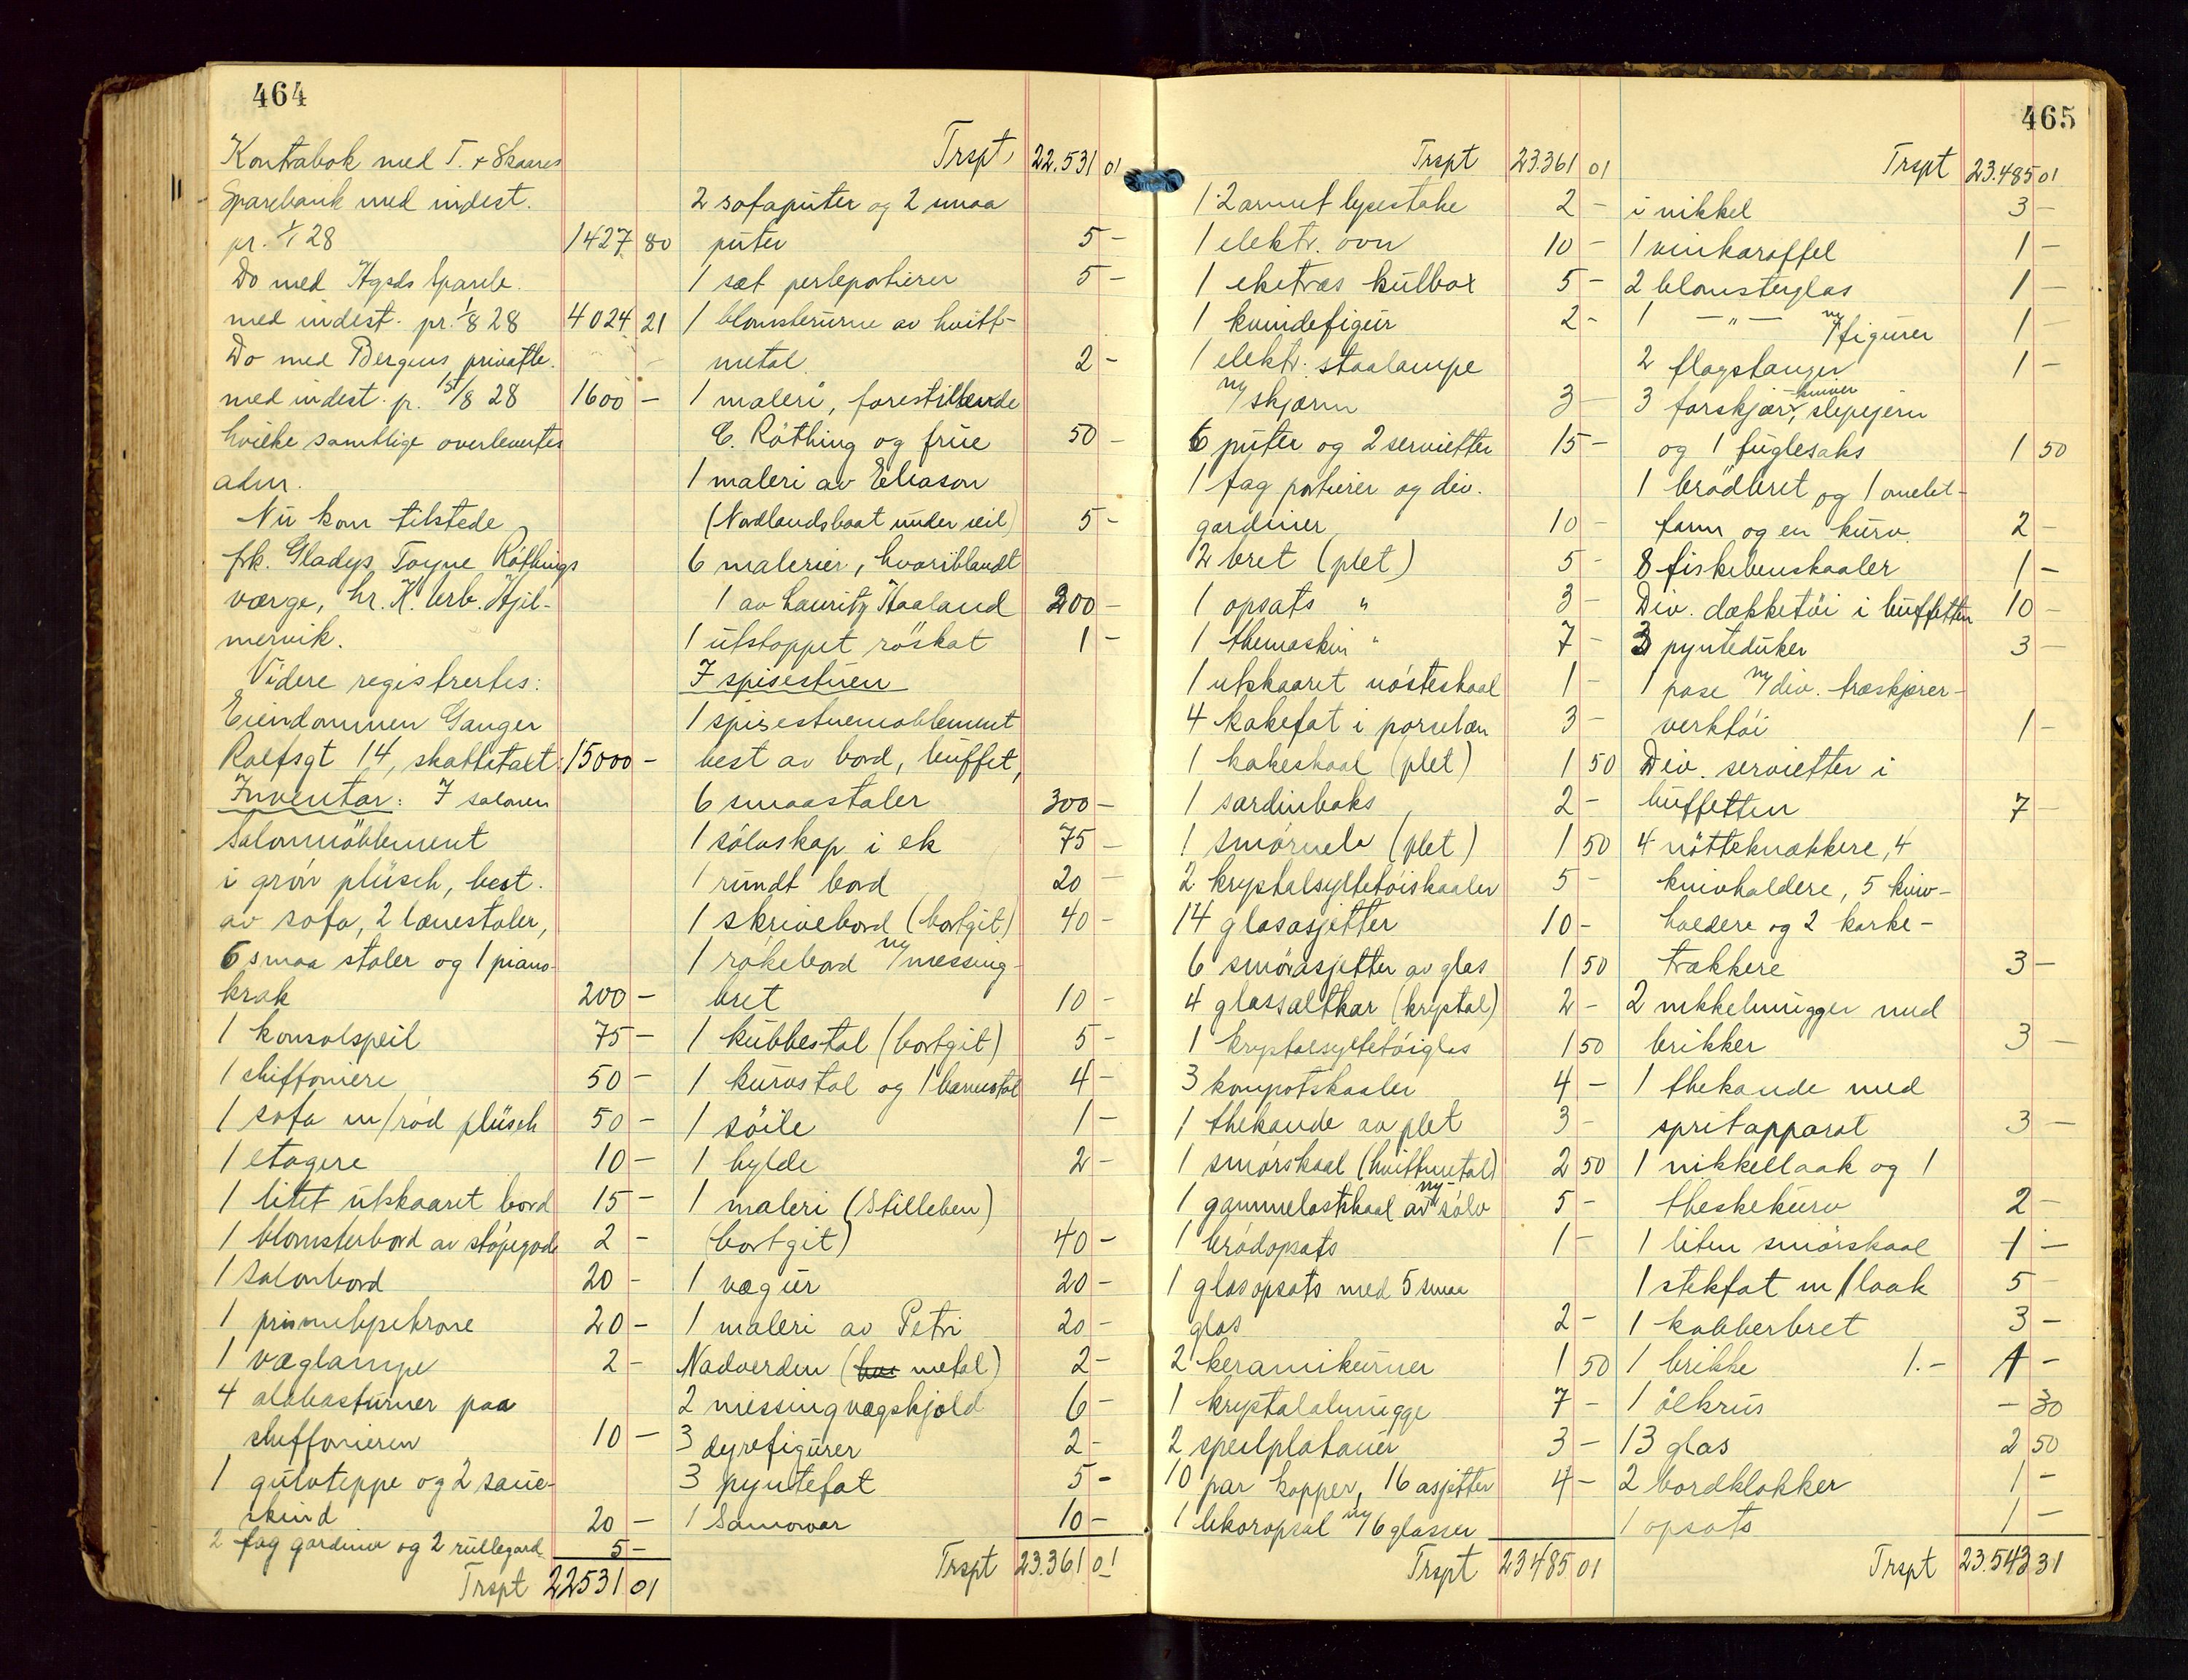 464
Kontrabok med T. & Skaares
Sparebank med indest.
pr. 1/1 28 1427 80
Do med Hgsds Spareb.
med indest. pr. 1/8 28 4024 21
Do med Bergens privatb.
med indest. p. 1/8 28 1600 -
hvilke samtlige overlevertes
adm.
Nu kom tilstede
frk. Gladys Toyne Røthings
værge, hr. K. Urb. Hjil-
mervik.
Videre registrertes:
Eiendommen Ganger
Rolfsgt 14, skattetalt 15000 -
Inventar: I salonen
Salonmöblement
i grøn plüsch, best.
av sofa, 2 lænestoler,
6 smaa stoler og 1 piano-
krak 200 -
1 konsolspeil 75 -
1 chiffoniere 50 -
1 sofa m/rød plüsch 50 -
1 etagere 10 -
1 litet utskaaret bord 15 -
1 blomsterbord av støpegods 2 -
1 salonbord 20 -
1 prismelysekrone 20 -
1 væglampe 2 -
4 alabasturner paa
chiffonieren 10 -
1 gulvteppe og 2 saue-
skind 20 -
2 fag gardiner og 2 rullegard. 5 -
Trspt 22531 01
Trspt 22.531 01
2 sofaputer og 2 smaa
puter 5 -
1 sæt perleportierer 5 -
1 blomsterurne av hvitt-
metal 2 -
1 maleri, forestillende
C. Röthing og frue 50 -
1 maleri av Eliason
(Nordlandsbaat under seil) 5 -
6 malerier, hvoriblandt
1 av Lauritz Haaland 200 -
1 utstoppet röskat 1 -
I spisestuen
1 spisestuemoblement
best av bord, buffet,
6 smaastoler 300 -
1 sölvskap i ek 75 -
1 rundt bord 20 -
1 skrivebord (bortgit) 40 -
1 røkebord m/messing-
bret 10 -
1 kubbestol (bortgit) 5 -
1 kurvstol og 1 barnestol 4 -
1 söile 1 -
1 hylde 2 -
1 maleri (Stilleben)
(bortgit) 40 -
1 vægur 20 -
1 maleri av Petri 20 -
Nadverden (metal) 2 -
2 messingvægskjold 6 -
3 dyrefigurer 2 -
3 pyntefat 5 -
1 Samovar 10 -
Trspt 23.361 01
465
Trspt 23.361 01
1 2 armet lysestake 2 -
1 elektr. ovn 10 -
1 eketræs kulbox 5 -
1 kvindefigur 2 -
1 elektr. staalampe
m/skjærm 3 -
6 puter og 2 servietter 15 -
1 fag portierer og div.
gardiner 10 -
2 bret (plet) 5 -
1 opsats " 3 -
1 themaskin " 7 -
1 utskaaret nösteskaal 1 -
4 kakefat i porselæn 3 -
1 kakeskaal (plet) 1 50
1 sardinboks 2 -
1 smørnele (plet) 1 50
2 krystalsyltetöiskaaler 5 -
14 glasasjetter 10 -
6 smörasjetter av glas 1 50
4 glassaltkar (krystal) 2 -
1 krystalsyltetöiglas 1 50
3 kompotskaaler 4 -
1 thekande av plet 3 -
1 smörskaal (hvittmetal) 2 50
1 gammelostskaal av ny-sölv 5 -
1 brødopsats 1 -
1 glasopsats med 5 smaa
glas 2 -
2 keramikurner 1 50
1 krystalolmugge 7 -
2 speilplatauer 3 -
10 par kopper, 16 asjetter 4 -
1 likøropsats m/6 glasser
Trspt 23485 01
Trspt 23.485 01
i nikkel 3 -
1 vinkaraffel 1 -
2 blomsterglas 1 -
1 -"- m/figurer 1 -
2 flagstanger 1 -
3 forskjærkniver, slipejern
og 1 fuglesaks 1 50
1 brödbret og 1 omelet-
form og en kurv 2 -
8 fiskebenskaaler 1 -
Div. dækketöi i buffetten 10 -
3 pynteduker 3 -
1 pose m/div. træskjærer-
verktöi 1 -
Div. servietter i
buffetten 7 -
4 nötteknækkere, 4
knivholdere, 5 kniv-
holdere og 2 korke-
trækkere 3 -
2 nikkelmugger med
brikker 3 -
1 thekande med
spritapparat 3 -
1 nikkellaak og 1
theskekurv 2 -
1 liten smörskaal 1 -
1 stekfat m/laak 5
1 kobberbret 3 -
1 brikke 1.- 1 -
1 ölkrus - 30
13 glas 2 50
2 bordklokker 1 -
1 opsats 1 -
Trspt 23.543 31